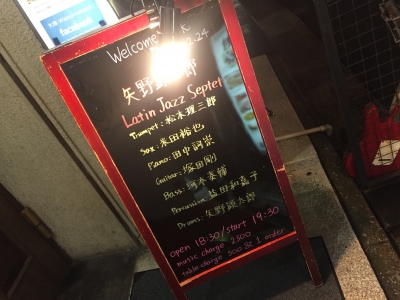 facebook
Welcome
2.24
矢野 郎
Latin Jazz Septet
Trumpet: 松木理三郎
Sax: 米田裕也
Piano: 田中詞崇
Guitar: 塚田剛
Bass:
Percussion: 益田和嘉子
Drums: 矢野 太郎
open 18:30/start 19:30
music charge 2300
table charge 500 & 1 order